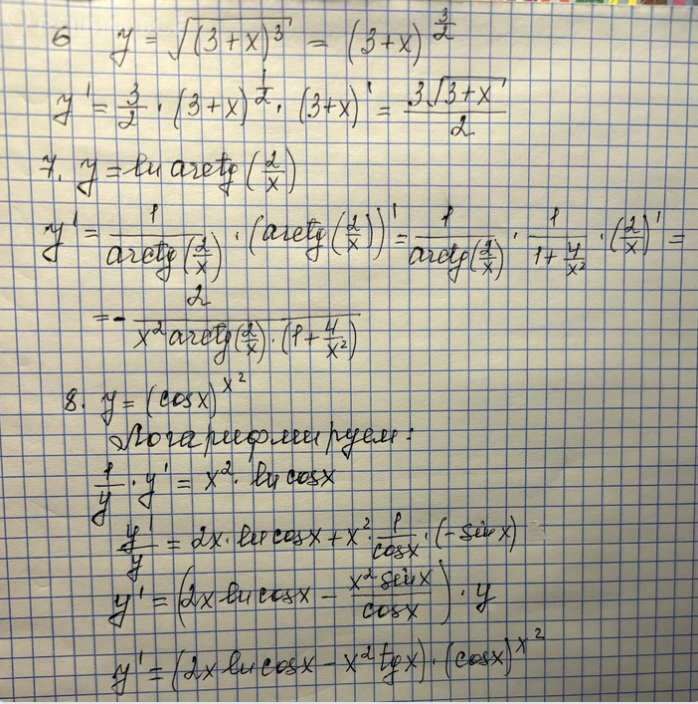 6 y = √((3+x)³) = (3+x)^(3/2)
y' = 3/2 · (3+x)^(1/2) · (3+x)' = 3√(3+x)/2
7. y = ln arctg(2/x)
y' = 1/arctg(2/x) · (arctg(2/x))' = 1/arctg(2/x) · 1/(1+4/x²) · (2/x)' =
= - 2/(x² arctg(2/x) · (1+4/x²))
8. y = (cosx)^(x²)
Логарифмируем:
1/y · y' = x² · ln cosx
y'/y = 2x · ln cosx + x² · 1/cosx · (-sinx)
y' = (2x ln cosx - x² sinx/cosx) · y
y' = (2x ln cosx - x² tgx) · (cosx)^(x²)